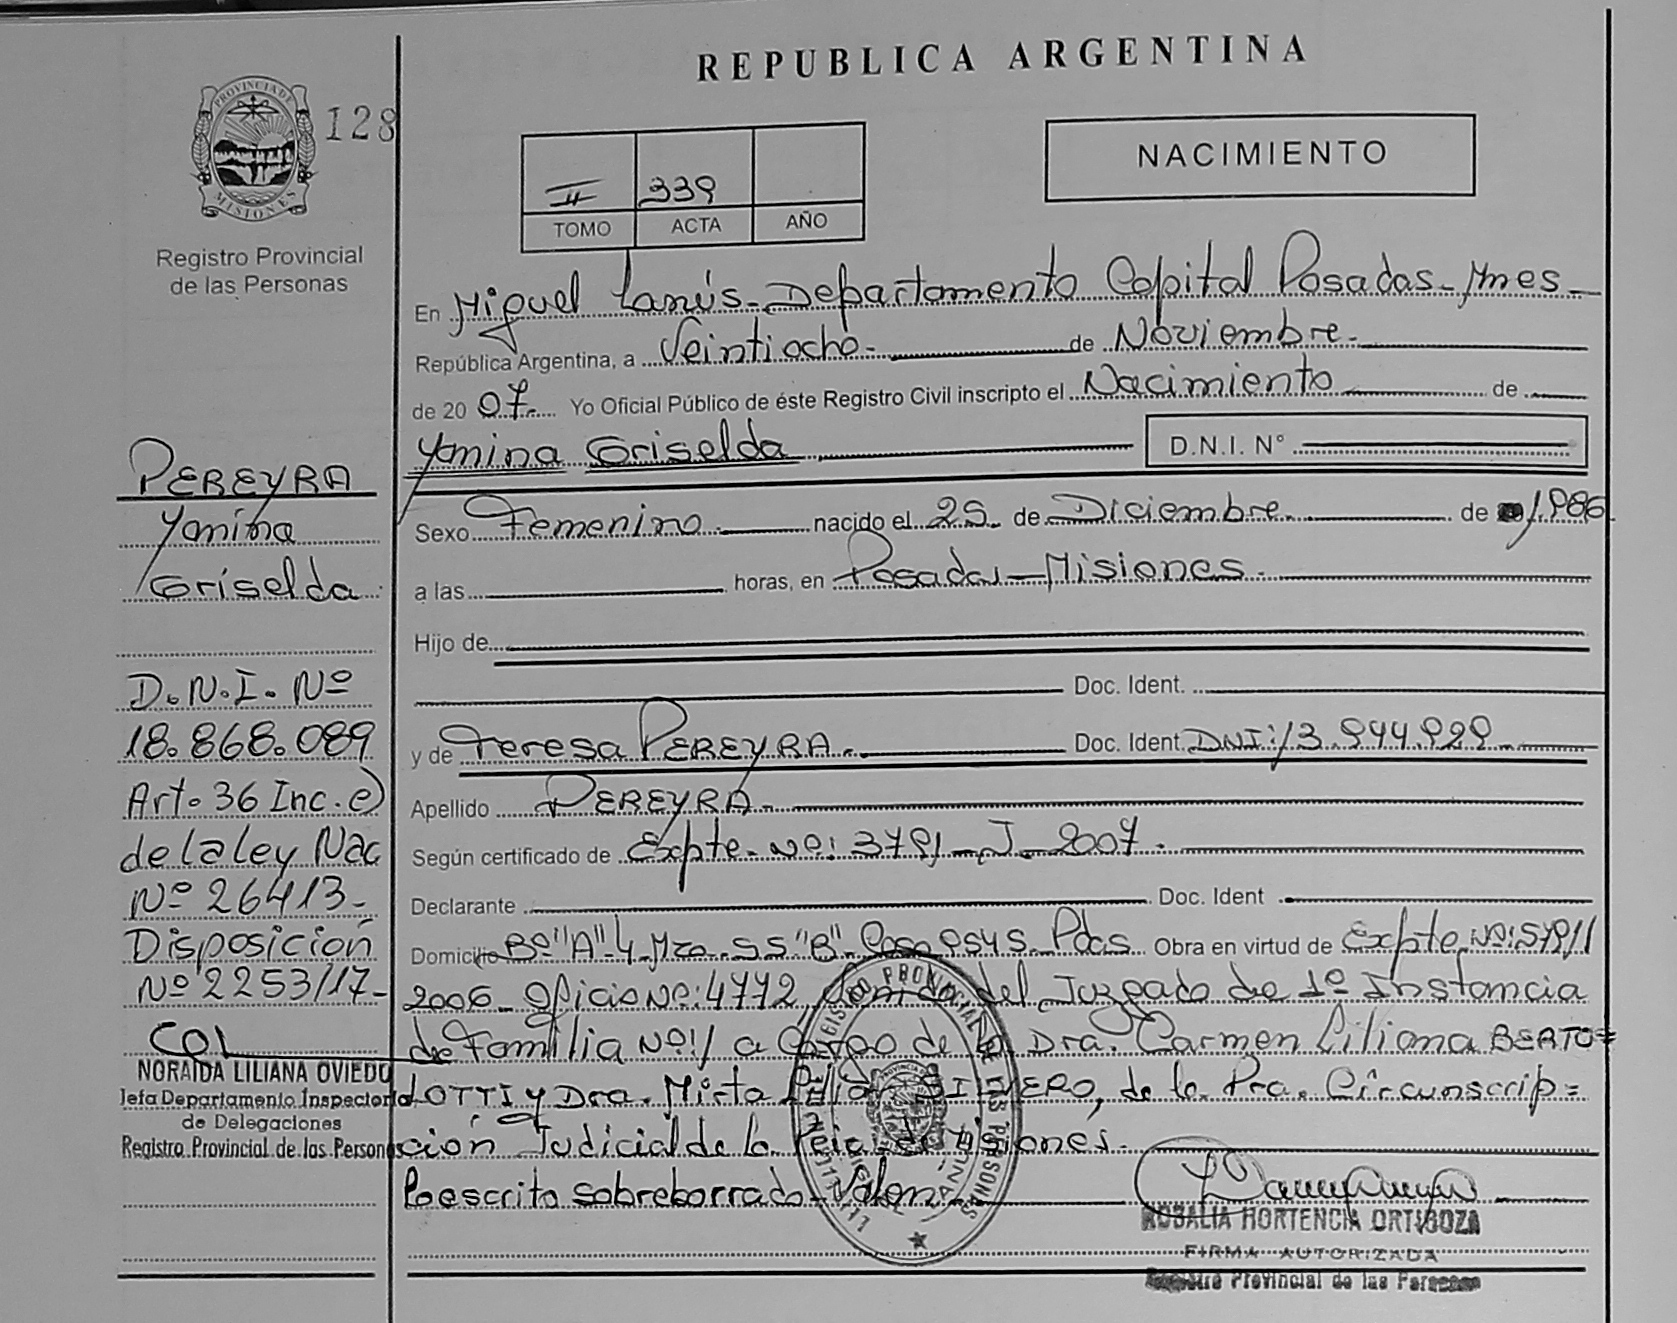 REPUBLICA ARGENTINA
PROVINCIA DE
MISIONES
128
Registro Provincial
de las Personas
II 339
TOMO ACTA AÑO
NACIMIENTO
En Miguel Lanús - Departamento Capital Posadas - Mnes -
República Argentina, a Veintiocho - de Noviembre -
de 20 07 Yo Oficial Público de éste Registro Civil inscripto el Nacimiento de
Yamina Griselda D.N.I. N°
Sexo Femenino nacido el 25 de Diciembre de 1986
a las horas, en Posadas - Misiones -
Hijo de
Doc. Ident.
y de Teresa PEREYRA - Doc. Ident. DNI: 13.944.929
Apellido PEREYRA -
Según certificado de Expte - Nº: 3791 - J - 2007 -
Declarante Doc. Ident
Domicilio Bº "A" 4 Mza - "B" - Casa Pdas Obra en virtud de Expte Nº:
2006 - Oficio Nº: 4772 del Juzgado de 1º Instancia
de Familia Nº: 1 a Cargo de la Dra. Carmen Liliana BERTO=
LOTTI y Dra. Mirta de la Pra. Circunscrip=
ción Judicial de la Pcia. de Misiones -
Lo escrito sobreborrado - Valen -
PEREYRA
Yamina
Griselda
D.N.I. Nº
18.868.089
Art. 36 Inc. e)
de la ley Nac
Nº 26413 -
Disposición
Nº 2253/17 -
NORAIDA LILIANA OVIEDO
Jefa Departamento Inspectoria
de Delegaciones
Registro Provincial de las Personas
ROSALIA HORTENCIA ORTIGOZA
FIRMA AUTORIZADA
Registro Provincial de las Personas